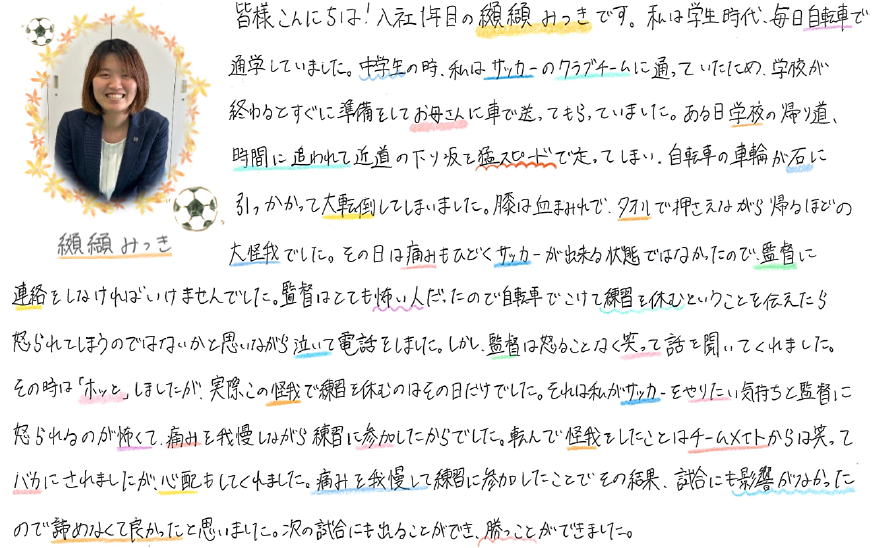 皆様こんにちは！入社1年目の纐纈みつきです。私は学生時代、毎日自転車で
通学していました。中学生の時、私はサッカーのクラブチームに通っていたため、学校が
終わるとすぐに準備をしてお母さんに車で送ってもらっていました。ある日学校の帰り道、
時間に追われて近道の下り坂を猛スピードで走ってしまい、自転車の車輪が石に
引っかかって大転倒してしまいました。膝は血まみれで、タオルで押さえながら帰るほどの
大怪我でした。その日は痛みもひどくサッカーが出来る状態ではなかったので、監督に
纐纈みつき
連絡をしなければいけませんでした。監督はとても怖い人だったので自転車でこけて練習を休むということを伝えたら
怒られてしまうのではないかと思いながら泣いて電話をしました。しかし、監督は怒ることなく笑って話を聞いてくれました。
その時は「ホッと」しましたが、実際、この怪我で練習を休むのはその日だけでした。それは私がサッカーをやりたい気持ちと監督に
怒られるのが怖くて、痛みを我慢しながら練習に参加したからでした。転んで怪我をしたことはチームメイトからは笑って
バカにされましたが、心配もしてくれました。痛みを我慢して練習に参加したことでその結果、試合にも影響がなかった
ので諦めなくて良かったと思いました。次の試合にも出ることができ、勝つことができました。